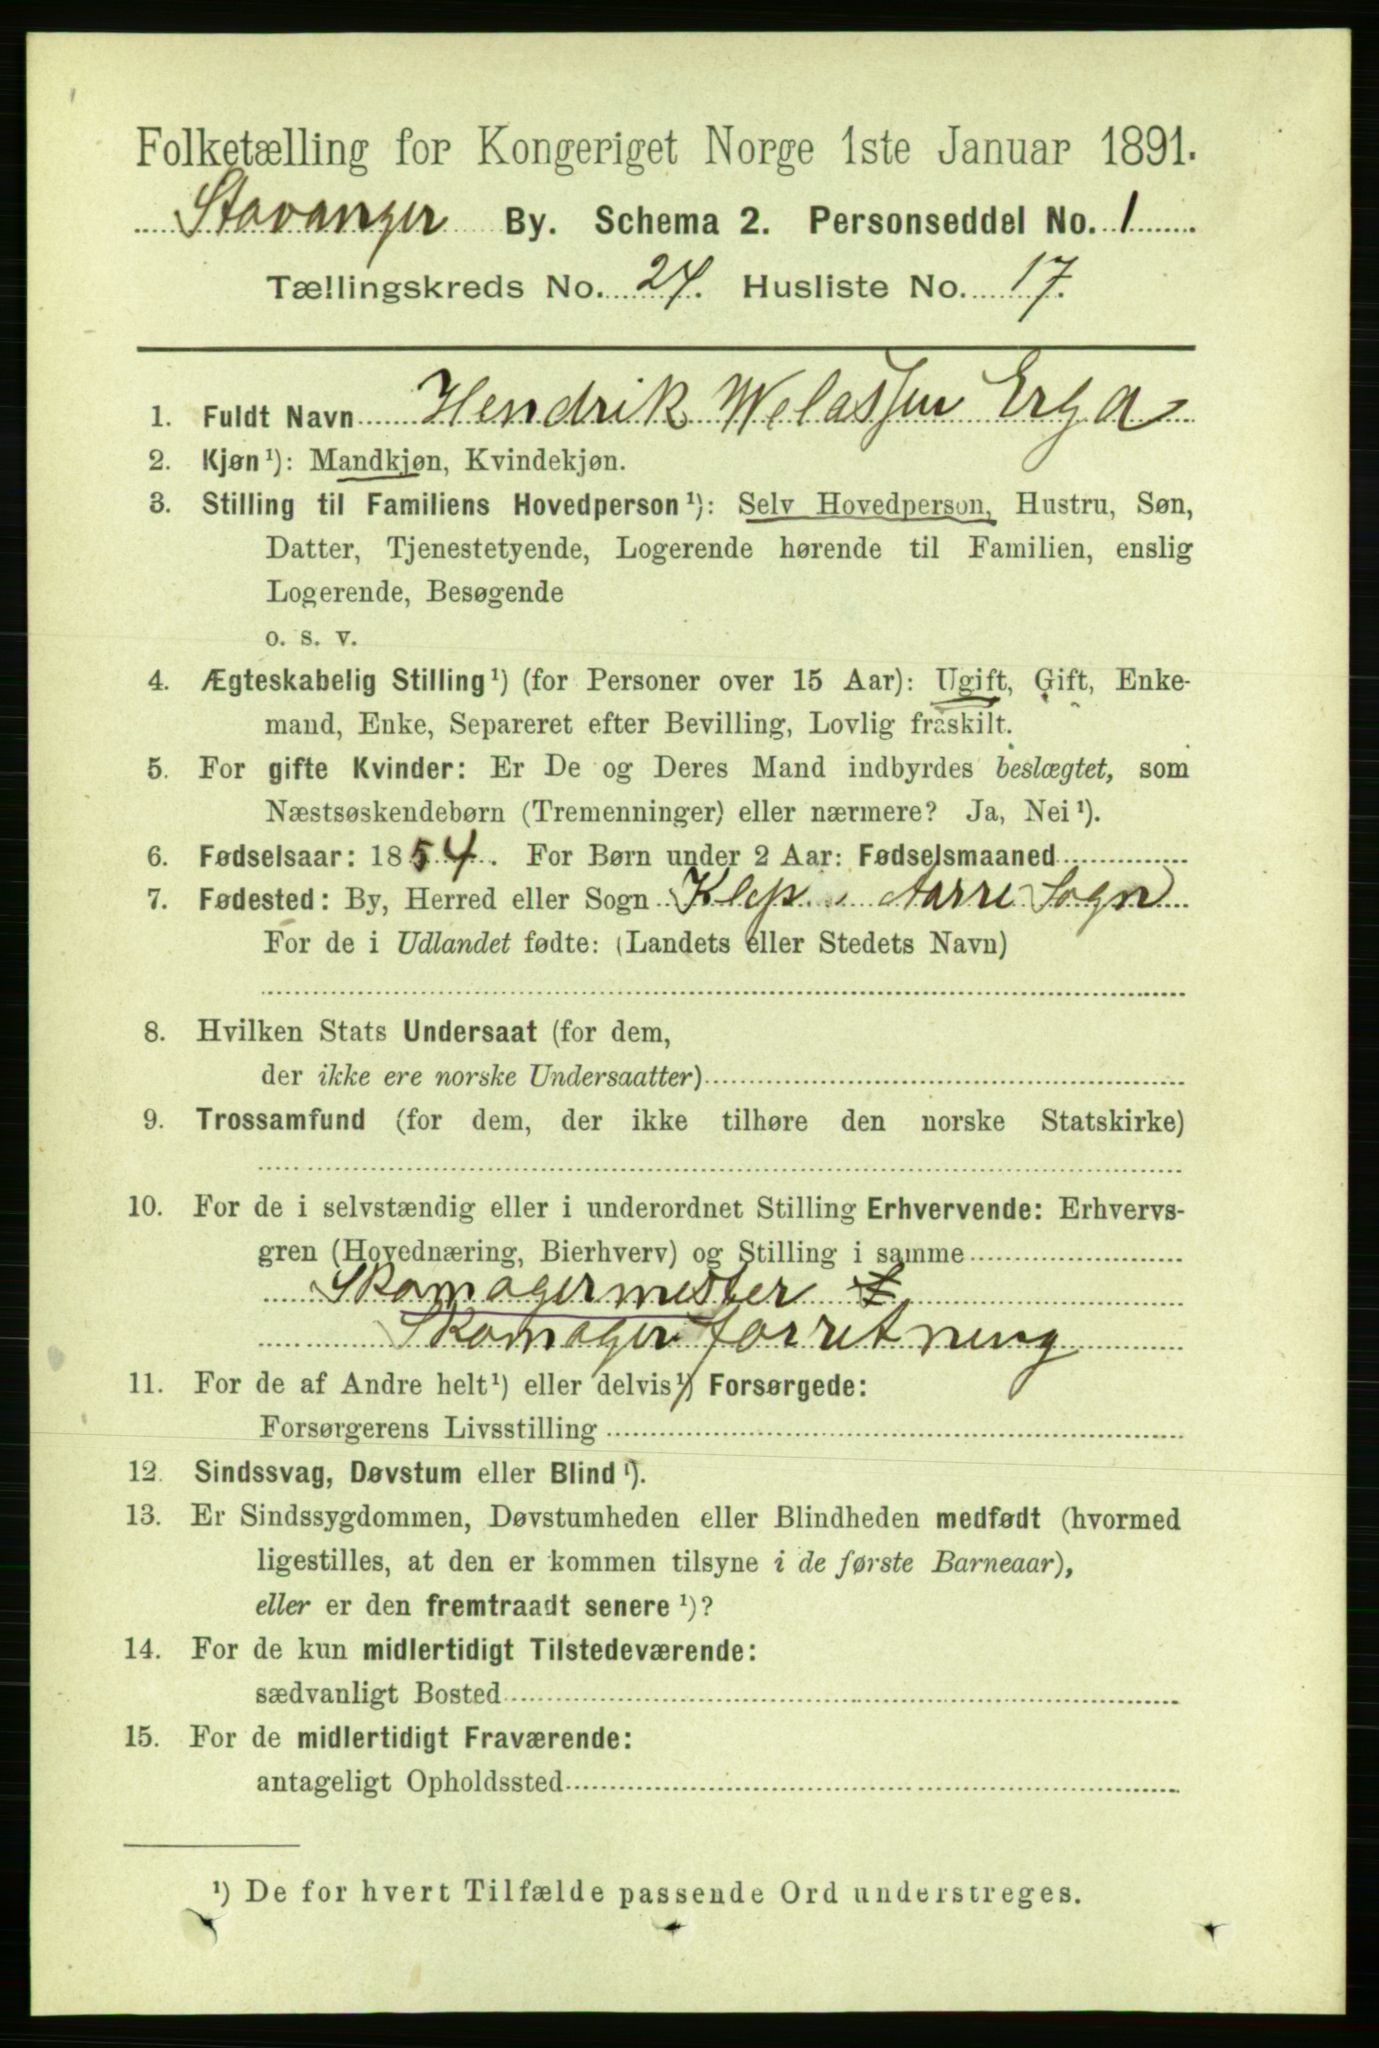 Folketælling for Kongeriget Norge 1ste Januar 1891.
Stavanger By. Schema 2. Personseddel No. 1
Tællingskreds No. 24. Husliste No. 17.
1. Fuldt Navn Hendrik Welassen Erga
2. Kjøn¹): Mandkjøn, Kvindekjøn.
3. Stilling til Familiens Hovedperson¹): Selv Hovedperson, Hustru, Søn,
Datter, Tjenestetyende, Logerende hørende til Familien, enslig
Logerende, Besøgende
o. s. v.
4. Ægteskabelig Stilling¹) (for Personer over 15 Aar): Ugift, Gift, Enke-
mand, Enke, Separeret efter Bevilling, Lovlig fraskilt.
5. For gifte Kvinder: Er De og Deres Mand indbyrdes beslægtet, som
Næstsøskendebørn (Tremenninger) eller nærmere? Ja, Nei¹).
6. Fødselsaar: 1854. For Børn under 2 Aar: Fødselsmaaned
7. Fødested: By, Herred eller Sogn Klep Aarre Sogn
For de i Udlandet fødte: (Landets eller Stedets Navn)
8. Hvilken Stats Undersaat (for dem,
der ikke ere norske Undersaatter)
9. Trossamfund (for dem, der ikke tilhøre den norske Statskirke)
10. For de i selvstændig eller i underordnet Stilling Erhvervende: Erhvervs-
gren (Hovednæring, Bierhverv) og Stilling i samme
Skomagermester
Skomager forretning
11. For de af Andre helt¹) eller delvis¹) Forsørgede:
Forsørgerens Livsstilling
12. Sindssvag, Døvstum eller Blind¹).
13. Er Sindssygdommen, Døvstumheden eller Blindheden medfødt (hvormed
ligestilles, at den er kommen tilsyne i de første Barneaar),
eller er den fremtraadt senere¹)?
14. For de kun midlertidigt Tilstedeværende:
sædvanligt Bosted
15. For de midlertidigt Fraværende:
antageligt Opholdssted
¹) De for hvert Tilfælde passende Ord understreges.